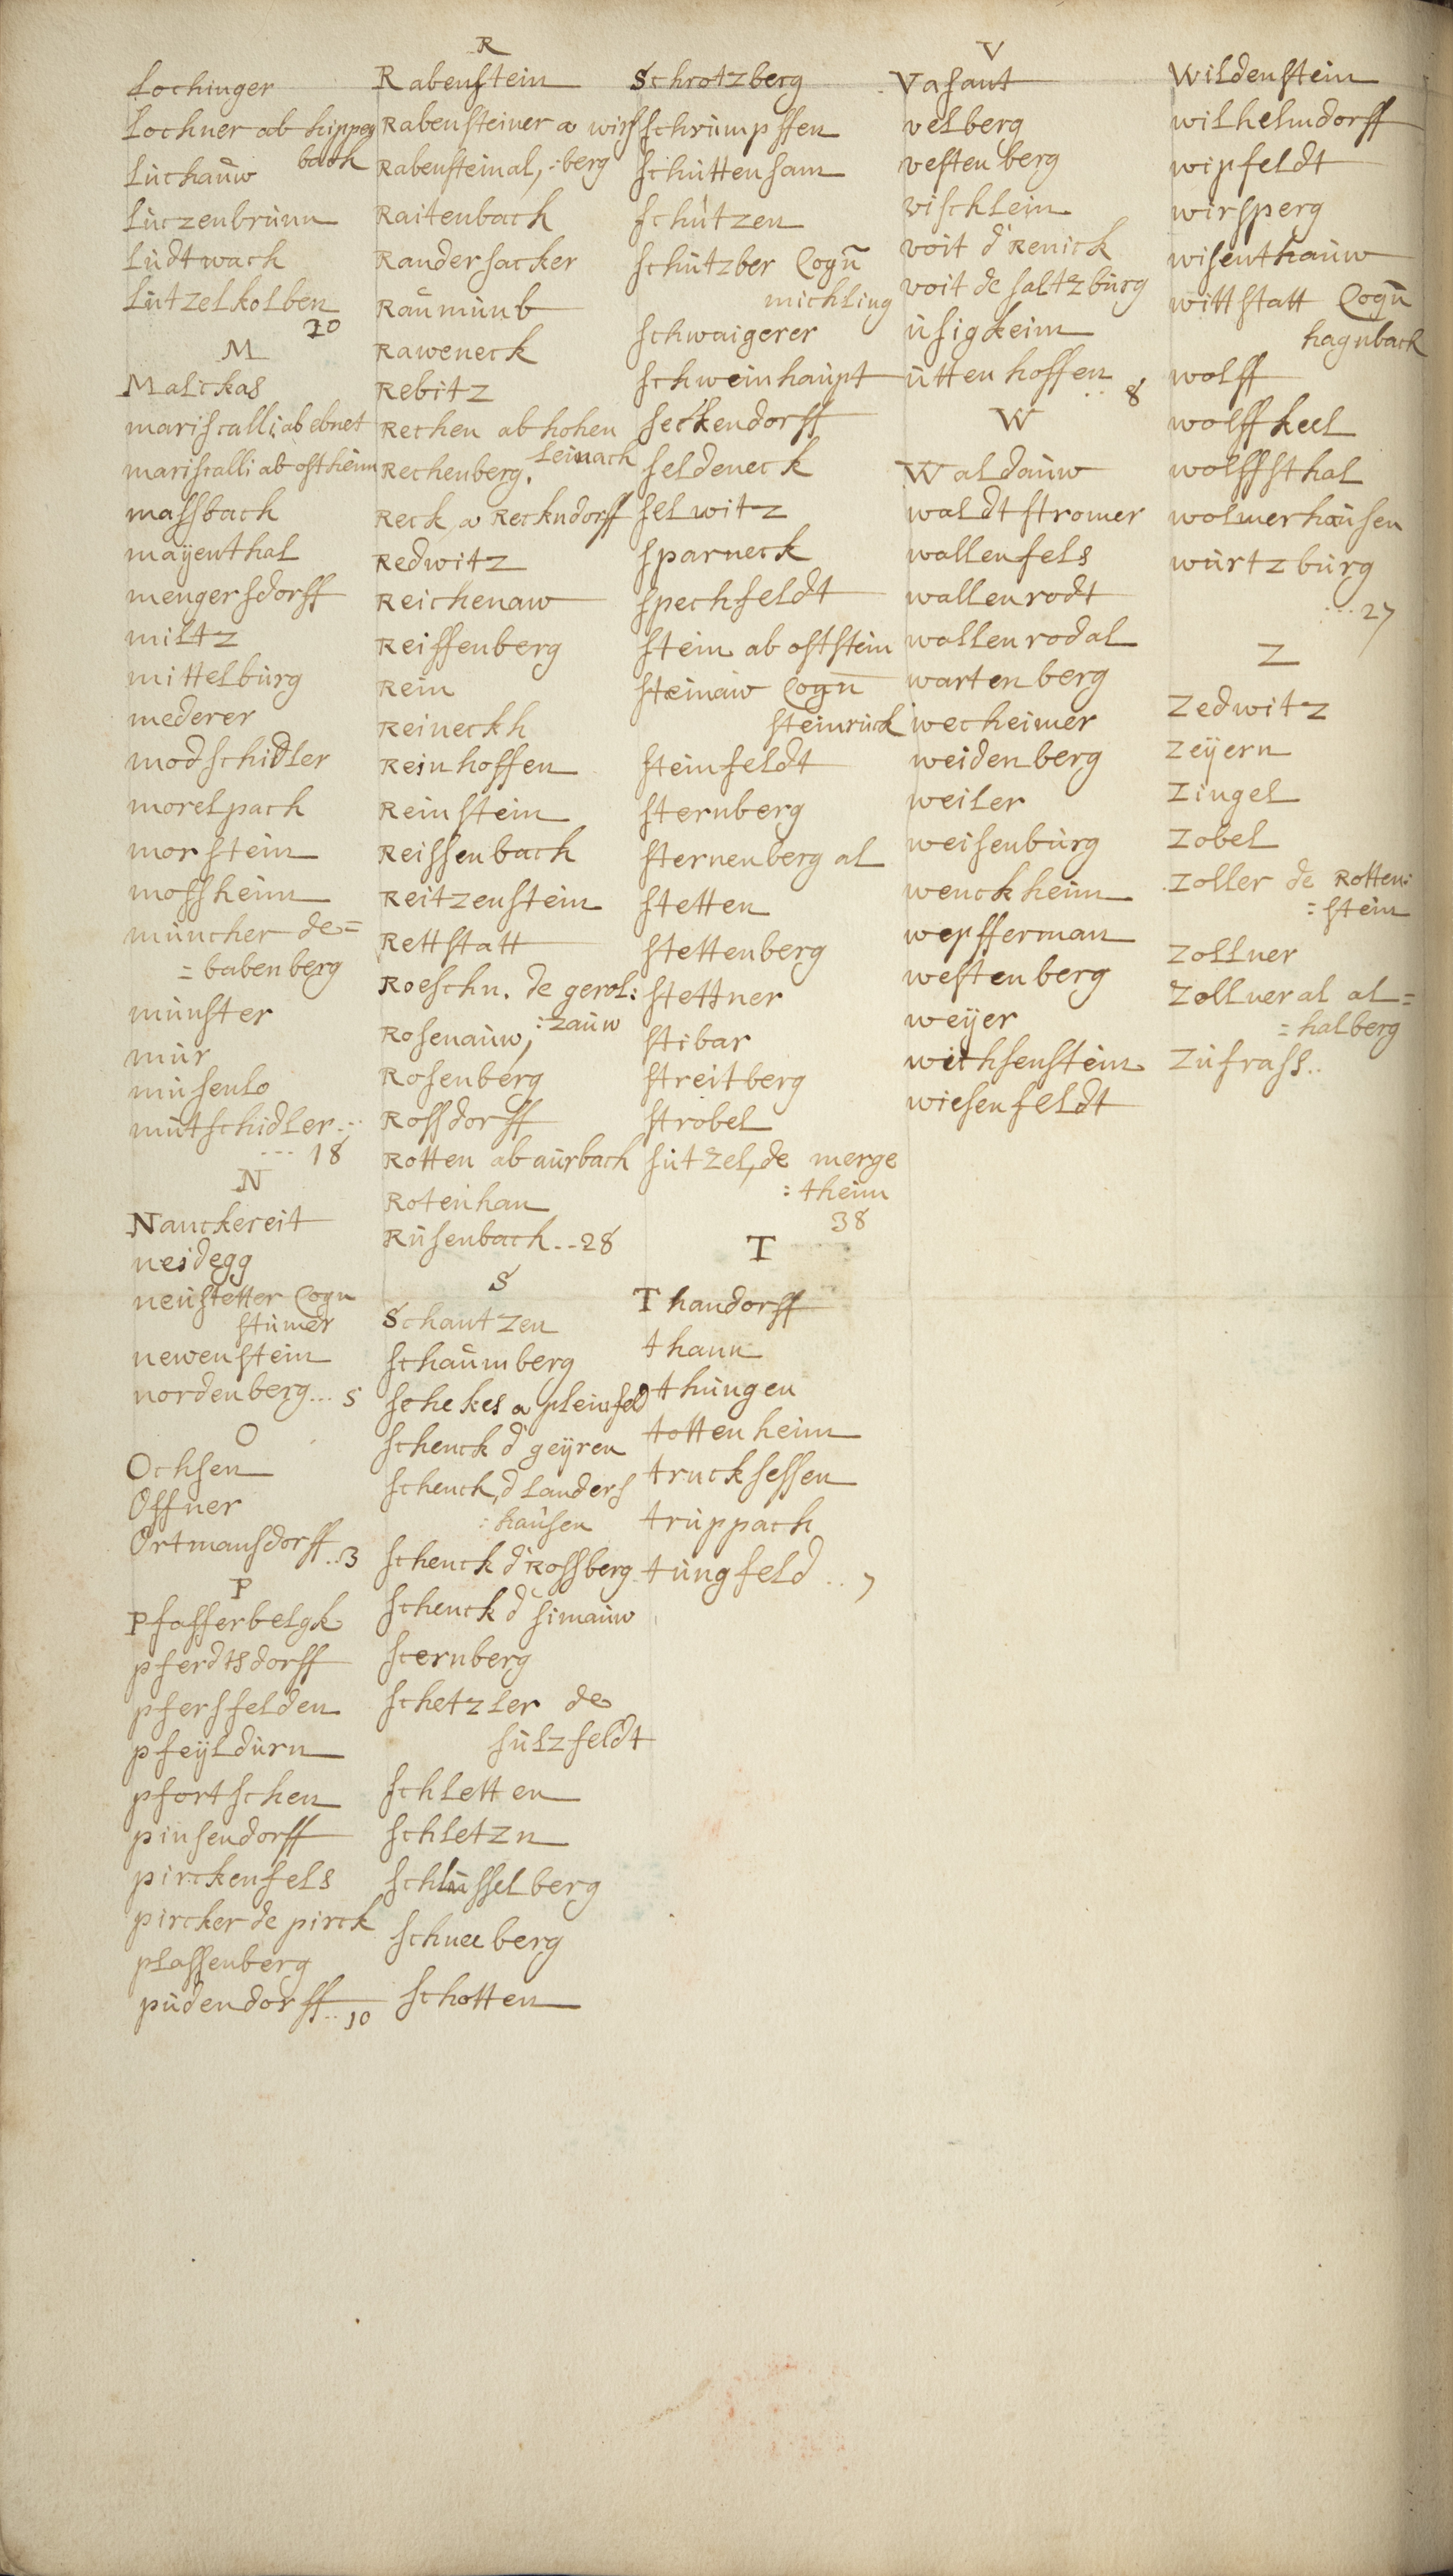 Lochinger
Lochner ab hippen
bach
Lùchaùw
Lùczenbrùnn
Lùdtwach
Lùtzelkolben
10
M
Malickas
mariscalli, ab ebnet
mariscalli ab ostheim
massbach
mayenthal
mengersdorff
miltz
mittelbùrg
mederer
modschidler
morelpach
morstein
mossheim
mùncher de=
=babenberg
mùnster
mùr
mùsenlo
mùtschidler...
... 18
N
Nanckereit
neidegg
neùstetter Cogn
stùmer
newenstein
nordenberg... 5
O
Ochsen
Offner
Ortmansdorff..3
P
Pfafferbelgk
pferdtsdorff
pfersfelden
pfeÿldùrn
pfortschen
pinsendorff
pirckenfels
pircker de pirck
plassenberg
pùdendorff..10
R
Rabenstein
Rabensteiner a wirs
Rabensteinal, :berg
Raitenbach
Randersacker
Raùmùnb
Raweneck
Rebitz
Rechen ab hohen
Leinach
Rechenberg.
Reck a Reckndorff
Redwitz
Reichenaw
Reiffenberg
Rein
Reineckh
Reinhoffen
Reinstein
Reissenbach
Reitzenstein
Rettstatt
Roeschn. de gerol:
:zaùw
Rosenaùw,
Rosenberg
Rossdorff
Rotten ab aùrbach
Rotenhan
Rùsenbach..28
S
Schantzen
schaùmberg
schekes a pleinfeld
schenck d' geÿren
schenck, d Landers
:haùsen
schenck d' Rossberg
schenck d' simaùw
scernberg
schetzler de
sùlzfeldt
schletten
schletzn
schlùsselberg
schneeberg
schotten
Schrotzberg
schrùmpffen
schùttensam
schùtzen
schùtzber Cogn̄
michling
schwaigerer
schweinhaùpt
seckendorff
seldeneck
selwitz
sparneck
spechfeldt
stein ab oststein
steinaw Cogn̄
steinrùck
steinfeldt
sternberg
sternenberg al
stetten
stettenberg
stettner
stibar
streitberg
strobel
sùtzel, de merge
:theim
38
T
Thandorff
thann
thùngen
tottenheim
truckssessen
trùppach
tùngfeld .. 7
V
Vasant
velberg
vestenberg
vischlein
voit d' Renick
voit de saltzbùrg
ùsigkeim
ùttenhoffen
.. 8
W
Waldaùw
waldtstromer
wallenfels
wallenrodt
wallenrodal
wartenberg
wecheimer
weidenberg
weiler
weisenbùrg
wenckheim
wepfferman
westenberg
weÿer
wichsenstein
wiesenfeldt
Wildenstein
wilhelmdorff
wipfeldt
wirsperg
wisenthaùw
wittstatt Cogn̄
hagnbach
wolff
wolffkeel
wolffsthal
wolmerhaùsen
wùrtzbùrg
...27
Z
Zedwitz
Zeÿern
Zingel
Zobel
Zoller de Rotten:
:stein
Zollner
Zollneral al=
=halberg
Zùfrass..